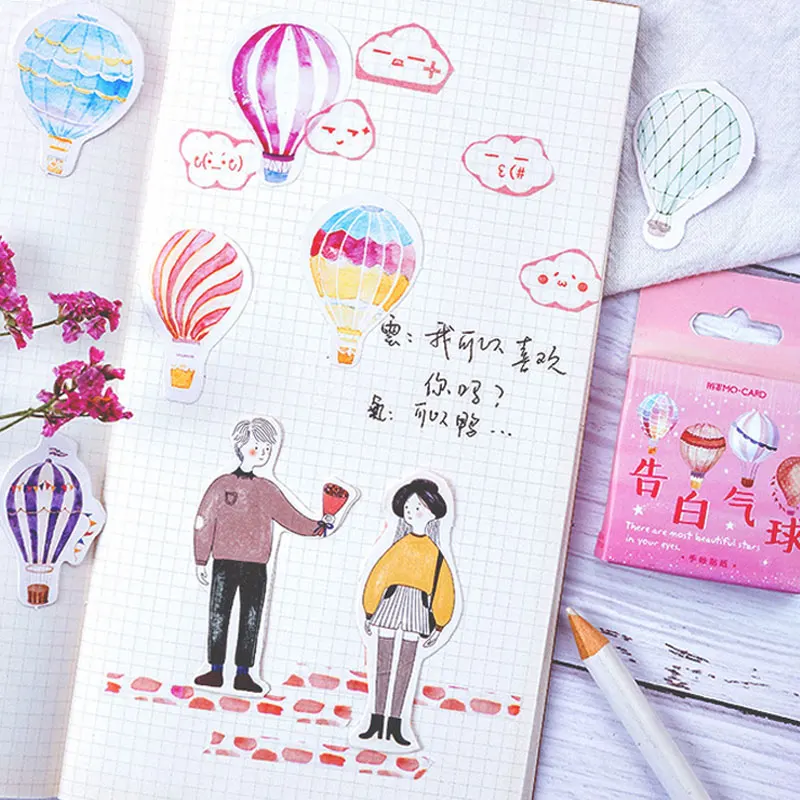 雲：我可以喜欢
你吗？
氣：可以鸭...
MO·CARD
告白气球
There are most beautiful stars
in your eyes.
·手帐贴纸·